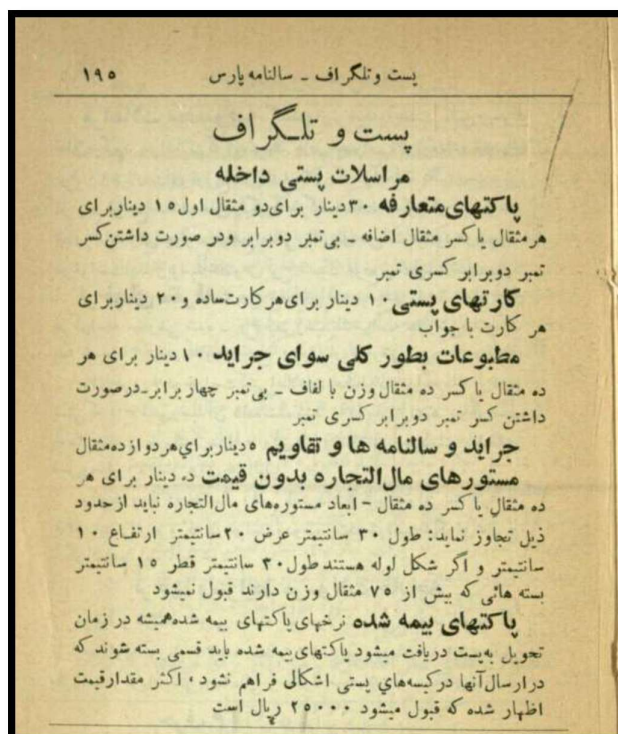 پست و تلگراف ـ سالنامه پارس ۱۹۵
پست و تلـگراف
مراسلات پستی داخله
پاکتهای متعارفه ۳۰ دینار برای دو مثقال اول ۱۵ دینار برای
هر مثقال یا کسر مثقال اضافه ـ بی تمبر دو برابر و در صورت داشتن کسر
تمبر دو برابر کسری تمبر
کارتهای پستی ۱۰ دینار برای هر کارت ساده و ۲۰ دینار برای
هر کارت با جواب
مطبوعات بطور کلی سوای جراید ۱۰ دینار برای هر
ده مثقال یا کسر ده مثقال وزن با لفاف ـ بی تمبر چهار برابر ـ در صورت
داشتن کسر تمبر دو برابر کسری تمبر
جراید و سالنامه ها و تقاویم ۵ دینار براي هر دوازده مثقال
مستورهای مال التجاره بدون قیمت ده دینار برای هر
ده مثقال یا کسر ده مثقال - ابعاد مستوره‌های مال التجاره نباید از حدود
ذیل تجاوز نماید: طول ۳۰ سانتیمتر عرض ۲۰ سانتیمتر ارتفـاع ۱۰
سانتیمتر و اگر شکل لوله هستند طول ۳۰ سانتیمتر قطر ۱۵ سانتیمتر
بسته هائی که بیش از ۷۵ مثقال وزن دارند قبول نمیشود
پاکتهای بیمه شده نرخهای پاکتهای بیمه شده همیشه در زمان
تحویل به پست دریافت میشود پاکتهای بیمه شده باید قسمی بسته شوند که
در ارسال آنها در کیسه‌هاي پستی اشکالی فراهم نشود، اکثر مقدار قیمت
اظهار شده که قبول میشود ۲۵۰۰۰ ریال است